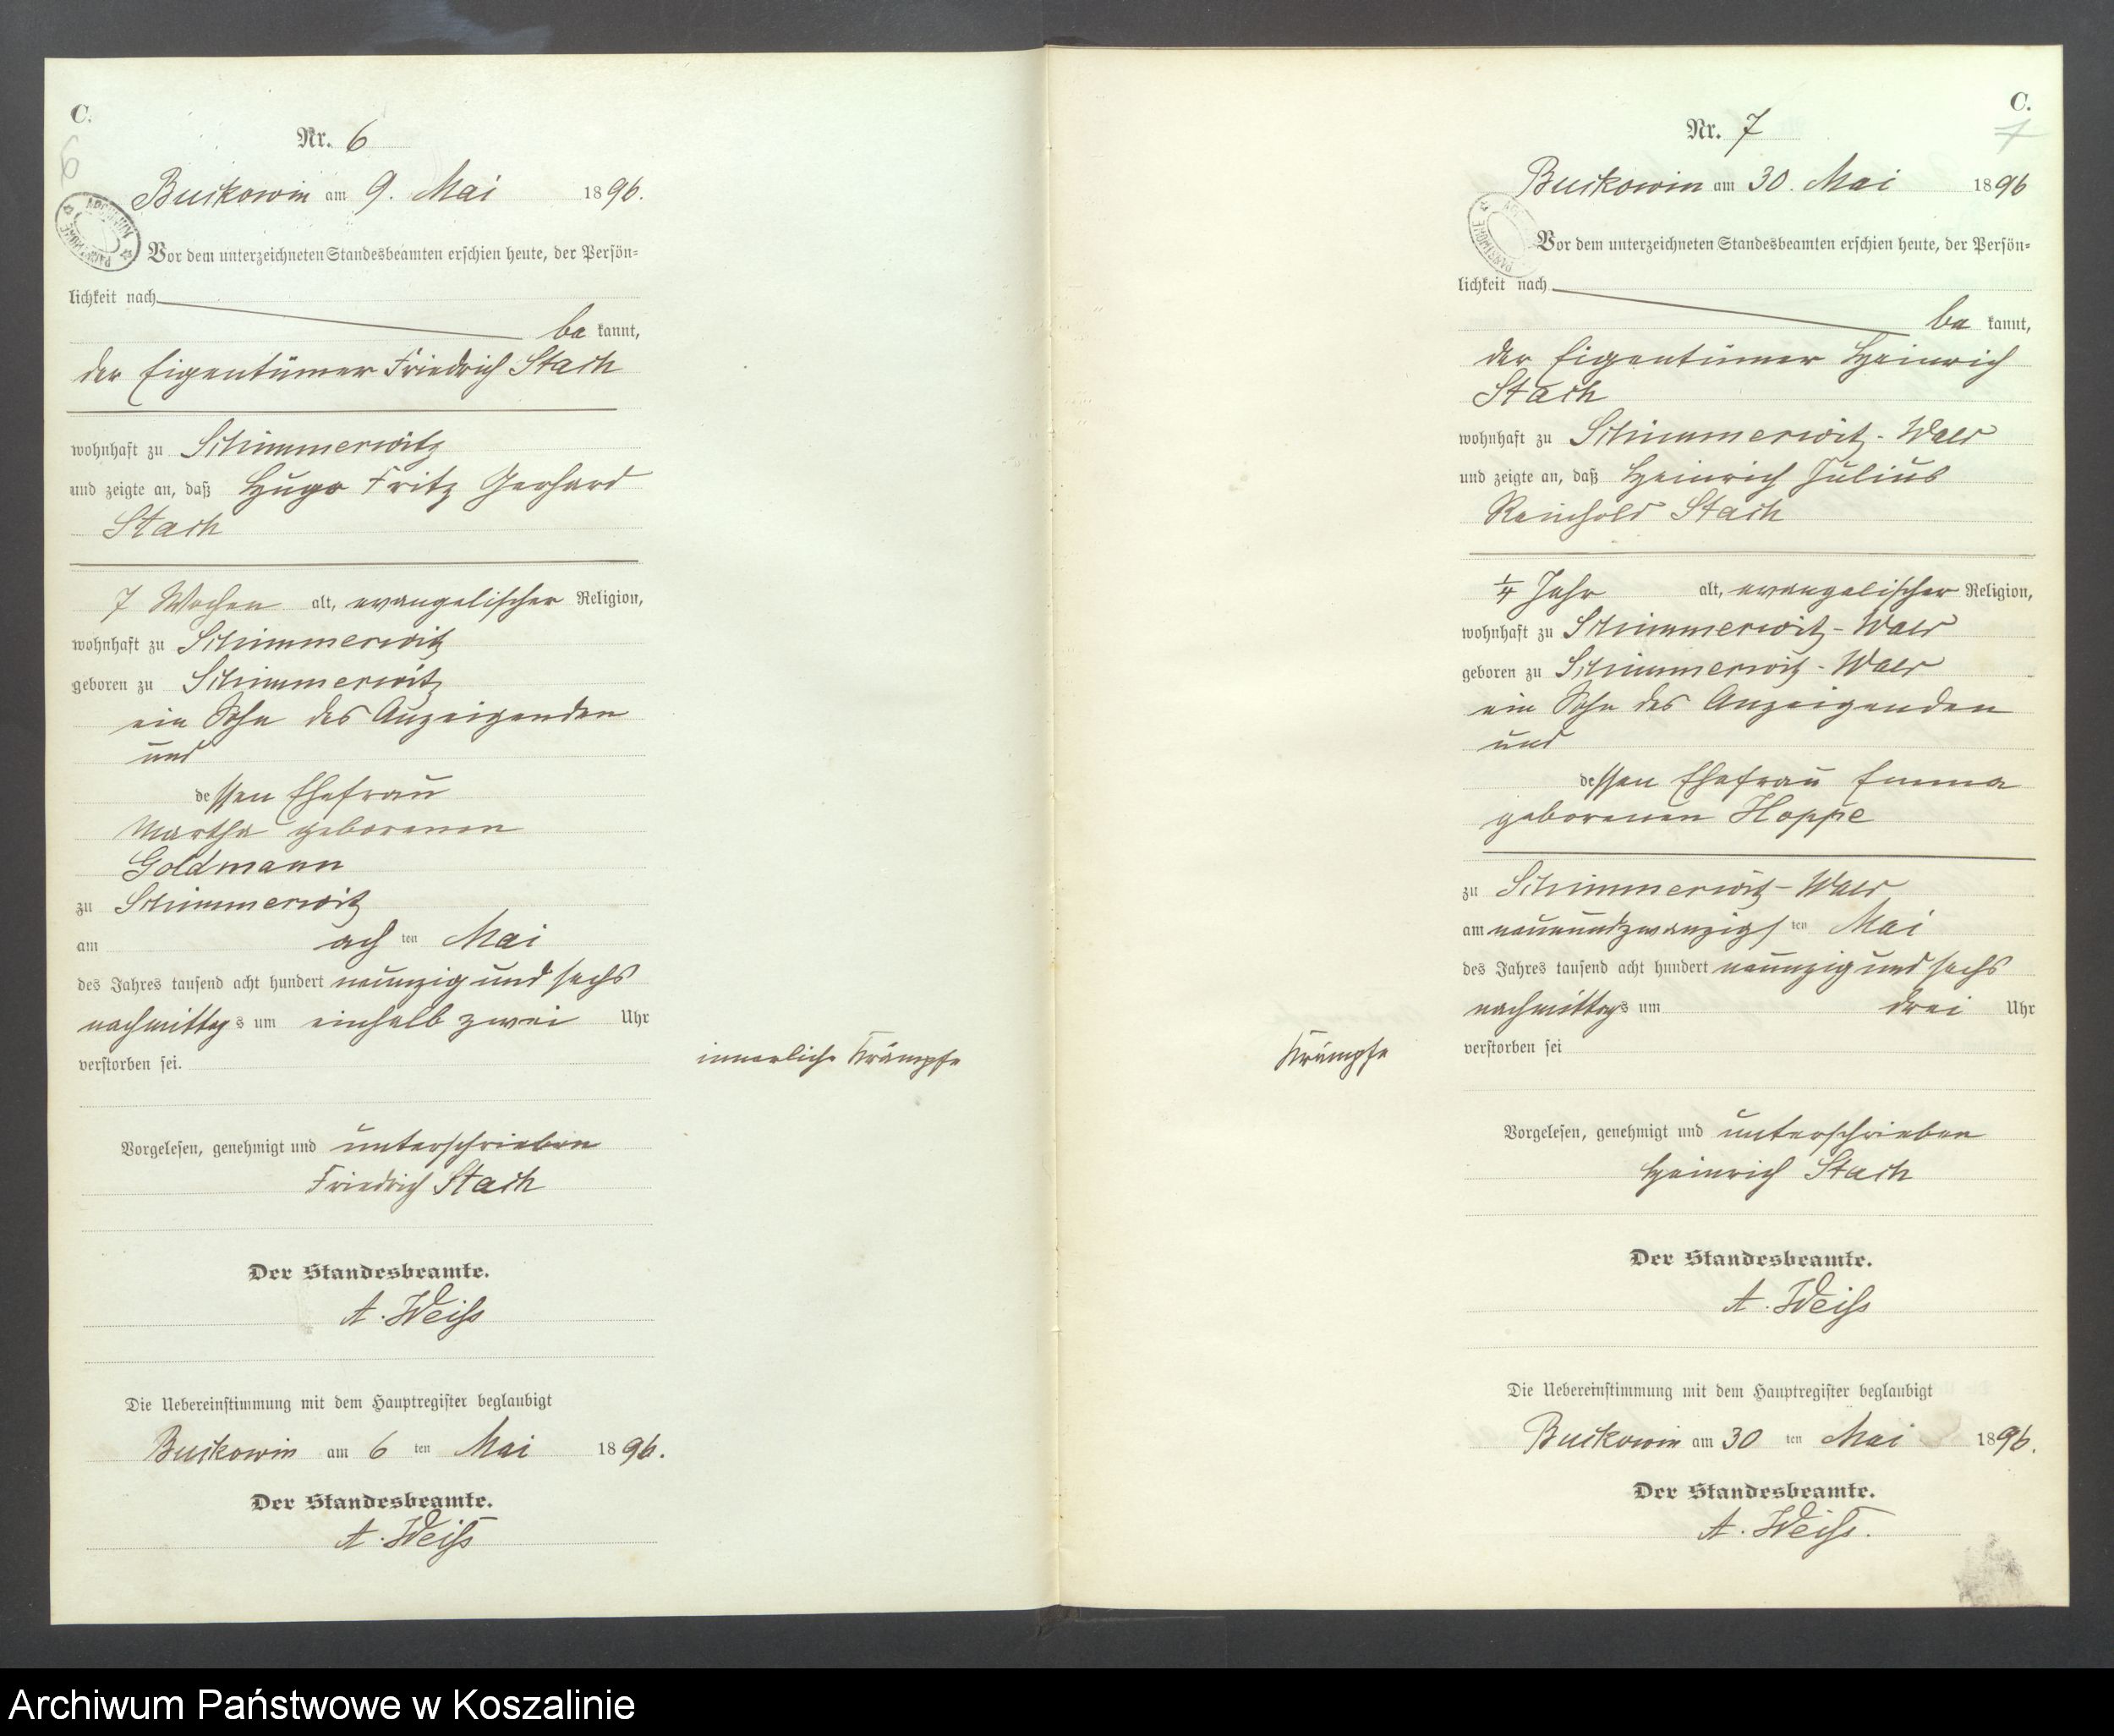 C.
Nr. 6
6
Buckowin am 9. Mai 1896.
Vor dem unterzeichneten Standesbeamten erschien heute, der Persön-
lichkeit nach
be kannt,
der Eigentümer Friedrich Stach
wohnhaft zu Schimmerwitz
und zeigte an, daß Hugo Fritz Gerhard
Stach
7 Wochen alt, evangelischer Religion,
wohnhaft zu Schimmerwitz
geboren zu Schimmerwitz
ein Sohn des Anzeigenden
und
dessen Ehefrau
Martha geborenen
Goldmann
zu Schimmerwitz
am ach ten Mai
des Jahres tausend acht hundert neunzig und sechs
nachmittags um einhalb zwei Uhr
verstorben sei.
innerliche Krämpfe
Vorgelesen, genehmigt und unterschrieben
Friedrich Stach
Der Standesbeamte.
A. Weiss
Die Uebereinstimmung mit dem Hauptregister beglaubigt
Buckowin am 6 ten Mai 1896.
Der Standesbeamte.
A. Weiss
C.
Nr. 7
7
Buckowin am 30. Mai 1896
Vor dem unterzeichneten Standesbeamten erschien heute, der Persön-
lichkeit nach
be kannt,
der Eigentümer Heinrich
Stach
wohnhaft zu Schimmerwitz-Wald
und zeigte an, daß Heinrich Julius
Reinhold Stach
1/4 Jahr alt, evangelischer Religion,
wohnhaft zu Schimmerwitz-Wald
geboren zu Schimmerwitz-Wald
ein Sohn des Anzeigenden
und
dessen Ehefrau Emma
geborenen Hoppe
zu Schimmerwitz-Wald
am neunundzwanzigs ten Mai
des Jahres tausend acht hundert neunzig und sechs
nachmittags um drei Uhr
verstorben sei
Krämpfe
Vorgelesen, genehmigt und unterschrieben
Heinrich Stach
Der Standesbeamte.
A. Weiss
Die Uebereinstimmung mit dem Hauptregister beglaubigt
Buckowin am 30 ten Mai 1896.
Der Standesbeamte.
A. Weiss.
Archiwum Państwowe w Koszalinie